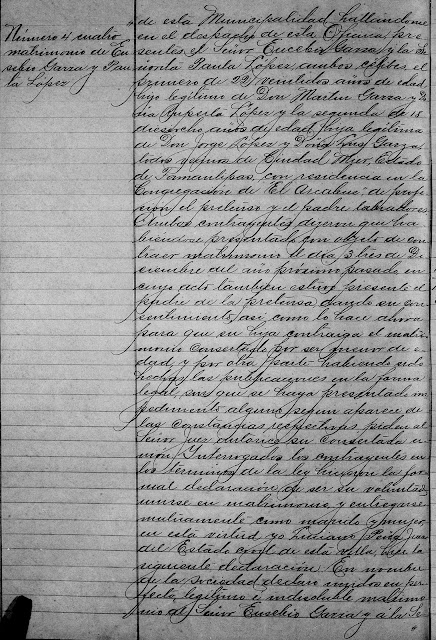 Número 4 cuatro
matrimonio de Eu
sebio Garza y Pau
la Lopez
de esta Municipalidad hallandome
en el despacho de esta Oficina pre
sentes el Señor Eucebio Garza y la Se
ñorita Paula López ambos célibes el
primero de 22 veintidos años de edad
hijo legítimo de Don Martin Garza y Do
ña Ruperta López y la segunda de 18
diesiocho años de edad, hija legítima
de Don Jorge López y Doña Garza
todos de Ciudad Mier, Estado
de Tamaulipas, con residencia en la
Congregación de El Arcabuz de profe
sión el pretenso y el padre labradores.
Ambos contrayentes dijeron que ha
biendose presentado con objeto de con
traer matrimonio el día 3 tres de Di
ciembre del año próximo pasado en
cuyo acto tambien estuvo presente el
padre de la pretensa dando su con
sentimiento, así como lo hace ahora
para que su hija contraiga el matri
monio consertado por ser menor de e
dad, y por otra parte habiendo sido
hechas las publicaciones en la forma
legal, sin que se haya presentado im
pedimento alguno segun aparece de
las constancias respectivas piden al
Señor Juez autorice su consertada u
nión. Interrogados los contrayentes en
los terminos de la ley hicieron la for
mal declaración de ser su voluntad
unirse en matrimonio y entregarse
mutuamente como marido y mujer,
en esta virtud yo Perez Juez
del Estado Civil de esta villa, hice la
siguiente declaración. En nombre
de la Sociedad declaro unidos en per
fecto, legítimo e indisoluble matrimo
nio al Señor Eusebio Garza y á la Se